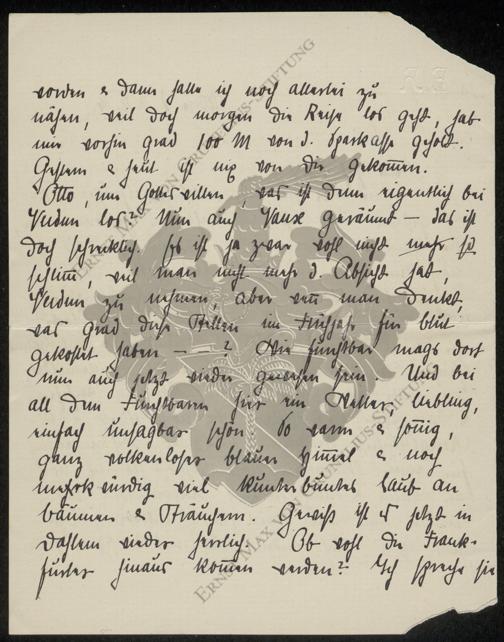 worden & dann hatte ich noch allerlei zu
nähen, weil doch morgen die Reise los geht, hab
mir vorhin grad 100 M von d. Sparkasse geholt.
Gestern & heut ist nix von dir gekommen.
Otto, um Gotteswillen, was ist denn eigentlich bei
Verdun los? Nun auch Vaux geräumt – das ist
doch schrecklich. Es ist ja zwar wohl nicht mehr so
schlimm, weil man nicht mehr d. Absicht hat,
Verdun zu nehmen, aber wenn man denkt,
was grad diese Stellen im Frühjahr für Blut
gekostet haben – –? Wie furchtbar mags dort
nun auch jetzt wieder gewesen sein. Und bei
all dem Furchtbaren hier ein Wetter, Liebling,
einfach unsagbar schön. So warm & sonnig,
ganz wolkenloser blauer Himmel & noch
merkwürdig viel kunterbuntes Laub an
Bäumen & Sträuchern. Gewiß ist es jetzt in
Dahlem wieder herrlich. Ob wohl die Frank-
furter hinaus kommen werden? Ich spreche sie
ERNST MAX VON GRUNELIUS-STIFTUNG
ERNST MAX VON GRUNELIUS-STIFTUNG